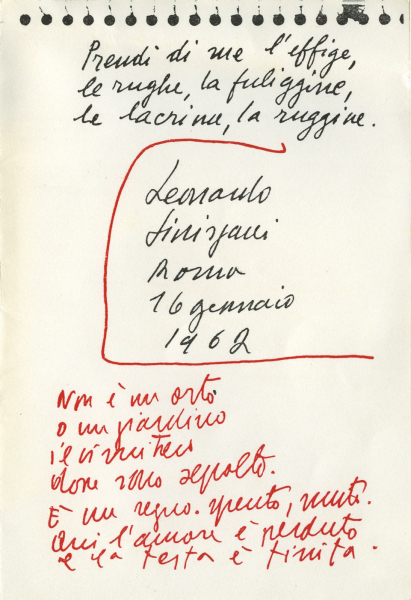 Prendi di me l'effige,
le rughe, la fuliggine,
le lacrime, la ruggine.
Leonardo
Sinisgalli
Roma
16 gennaio
1962
Non è un orto
o un giardino
il cimitero
dove sono sepolto.
È un regno spento, muto.
Qui l'amore è perduto
e la testa è finita.